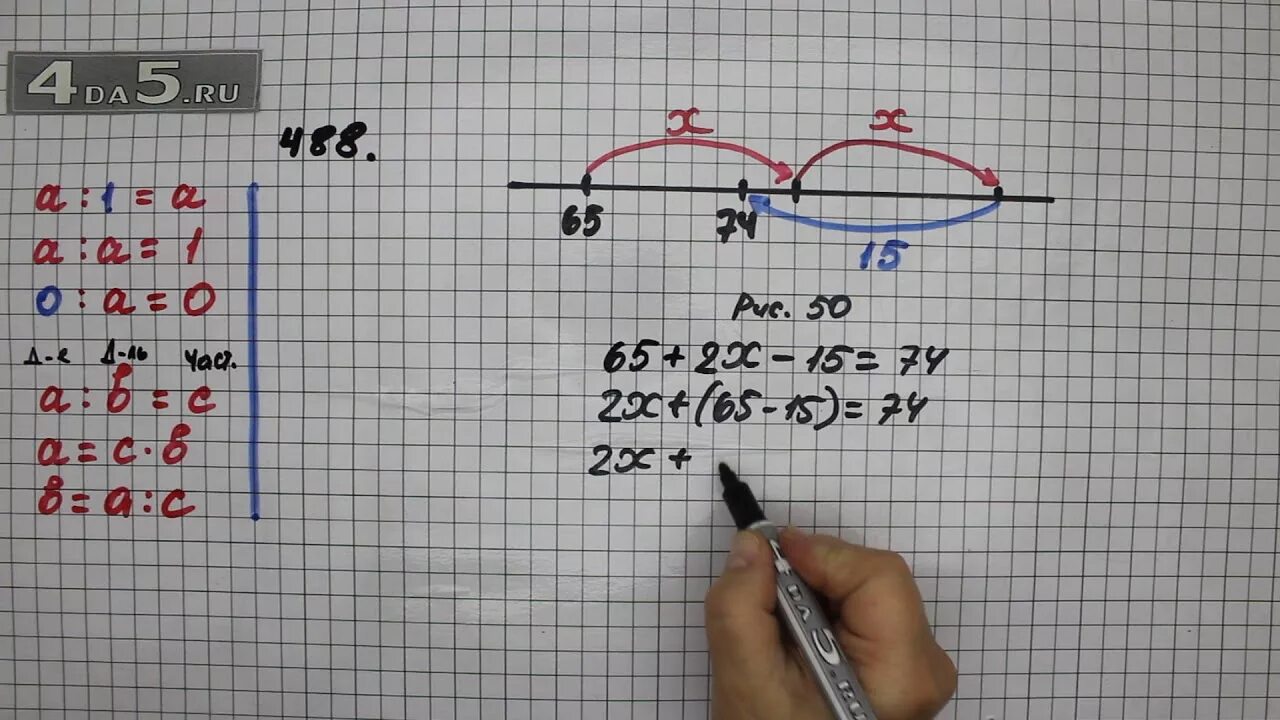 4DA5.RU
488.
a : 1 = a
a : a = 1
0 : a = 0
Д-е Д-ль Част.
a : в = c
a = c · в
в = a : c
x x
65 74
15
Рис. 50
65 + 2x - 15 = 74
2x + (65 - 15) = 74
2x +
4DA5.RU